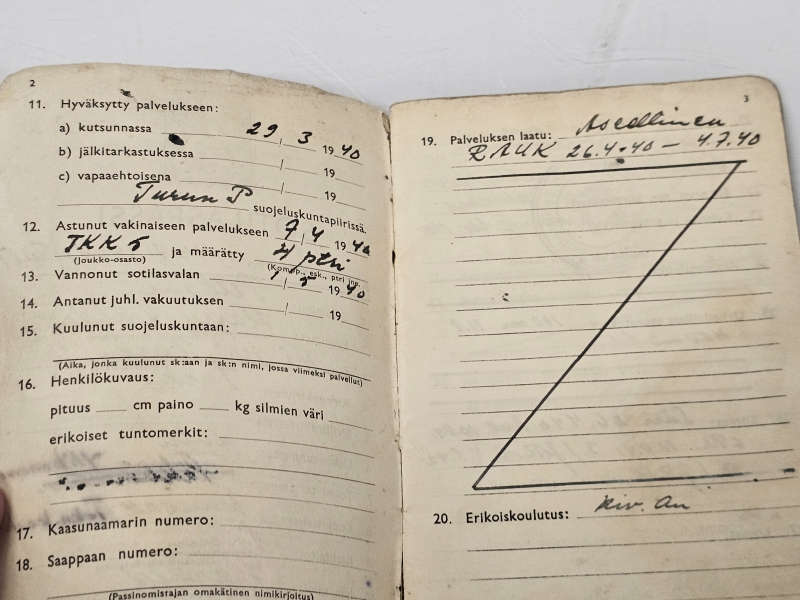 2
11. Hyväksytty palvelukseen:
a) kutsunnassa 29/3 1940
b) jälkitarkastuksessa / 19
c) vapaaehtoisena / 19
Turun P suojeluskuntapiirissä.
12. Astunut vakinaiseen palvelukseen 7/4 1940
TKK 5 ja määrätty 4 ptri
(Joukko-osasto) (Kompp., esk., ptri jne.
13. Vannonut sotilasvalan 1/5 1940
14. Antanut juhl. vakuutuksen / 19
15. Kuulunut suojeluskuntaan:
(Aika, jonka kuulunut sk:aan ja sk:n nimi, jossa viimeksi palvellut)
16. Henkilökuvaus:
pituus cm paino kg silmien väri
erikoiset tuntomerkit:
17. Kaasunaamarin numero:
18. Saappaan numero:
(Passinomistajan omakätinen nimikirjoitus)
3
19. Palveluksen laatu: Aseellinen
RAUK 26.4.40 — 4.7.40
20. Erikoiskoulutus: kiv. au